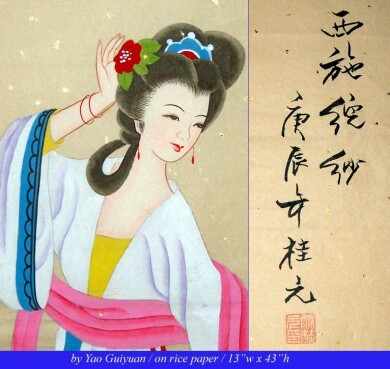 西施綄紗
庚辰年桂元
by Yao Guiyuan / on rice paper / 13"w x 43"h